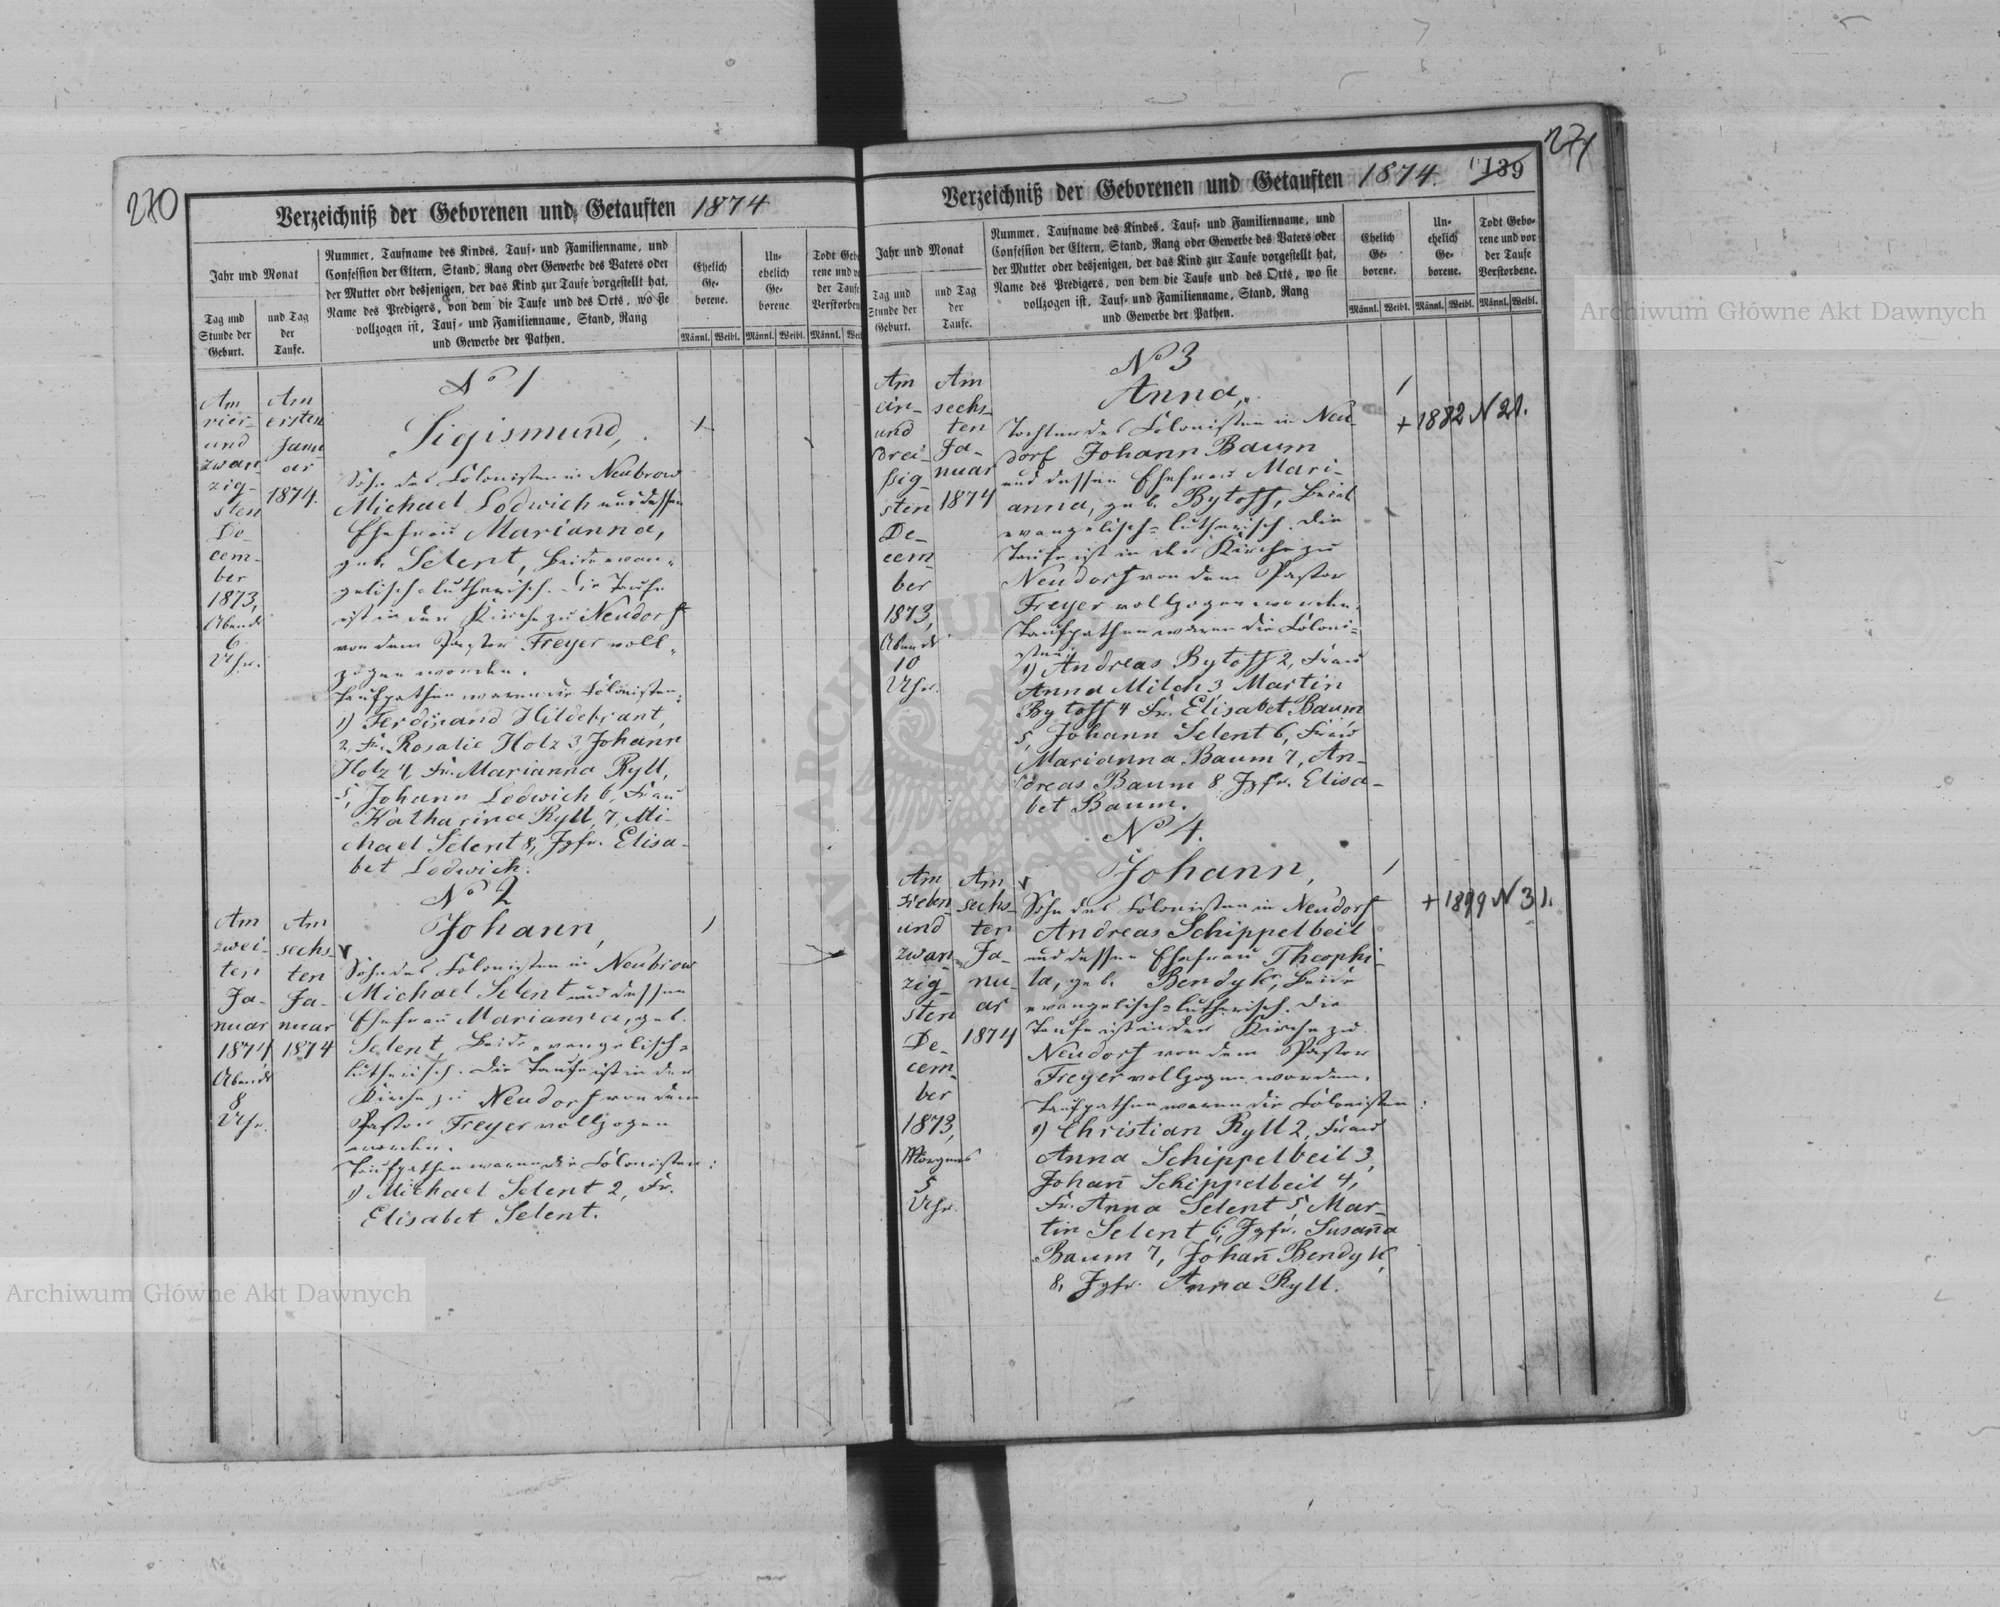 270
Verzeichniß der Geborenen und Getauften 1874
Jahr und Monat
Tag und
Stunde der
Geburt.
und Tag
der
Taufe.
Nummer, Taufname des Kindes, Tauf- und Familienname, und
Confession der Eltern, Stand, Rang oder Gewerbe des Vaters oder
der Mutter oder desjenigen, der das Kind zur Taufe vorgestellt hat,
Name des Predigers, von dem die Taufe und des Orts, wo sie
vollzogen ist, Tauf- und Familienname, Stand, Rang
und Gewerbe der Pathen.
Ehelich
Ge-
borene.
Un-
ehelich
Ge-
borene
Todt Geb
rene und v
der Taufe
Verstorben
Männl. Weibl. Männl. Weibl. Männl. Wei
Am
vier-
und
zwan
zig-
sten
De-
cem-
ber
1873,
Abends
6
Uhr.
Am
ersten
Janu
ar
1874.
No 1
Sigismund,
Sohn des Colonisten in Neubrow
Michael Lodwich und dessen
Ehefrau Marianna,
geb. Selent, Beide evan-
gelisch-lutherisch. Die Taufe
ist in der Kirche zu Neudorf
von dem Pastor Freyer voll-
zogen worden.
Taufpathen waren die Colonisten:
1) Ferdinand Hildebrant,
2, Fr. Rosalie Holz 3, Johann
Holz 4, Fr. Marianna Ryll,
5, Johann Lodwich 6, Frau
Katharina Ryll, 7, Mi-
chael Selent 8, Jgfr. Elisa-
bet Lodwich.
Am
zwei-
ten
Ja-
nuar
1874
Abends
8
Uhr.
Am
sechs-
ten
Ja-
nuar
1874
No 2
Johann,
Sohn des Colonisten in Neubrow
Michael Selent und dessen
Ehefrau Marianna, geb.
Selent, Beide evangelisch-
lutherisch. Die Taufe ist in der
Kirche zu Neudorf von dem
Pastor Freyer vollzogen
worden.
Taufpathen waren die Colonisten:
1) Michael Selent 2, Fr.
Elisabet Selent.
271
139
Verzeichniß der Geborenen und Getauften 1874.
Jahr und Monat
Tag und
Stunde der
Geburt.
und Tag
der
Taufe.
Nummer, Taufname des Kindes, Tauf- und Familienname, und
Confession der Eltern, Stand, Rang oder Gewerbe des Vaters oder
der Mutter oder desjenigen, der das Kind zur Taufe vorgestellt hat,
Name des Predigers, von dem die Taufe und des Orts, wo sie
vollzogen ist, Tauf- und Familienname, Stand, Rang
und Gewerbe der Pathen.
Ehelich
Ge-
borene.
Un-
ehelich
Ge-
borene.
Todt Gebo-
rene und vor
der Taufe
Verstorbene.
Männl. Weibl. Männl. Weibl. Männl. Weibl.
Am
ein-
und
drei-
ßig-
sten
De-
cem-
ber
1873,
Abends
10
Uhr.
Am
sechs-
ten
Ja-
nuar
1874
No 3
Anna,
Tochter des Colonisten in Neu-
dorf Johann Baum
und dessen Ehefrau Mari-
anna, geb. Bytoff, Beide
evangelisch-lutherisch. Die
Taufe ist in der Kirche zu
Neudorf von dem Pastor
Freyer vollzogen worden.
Taufpathen waren die Coloni-
sten:
1) Andreas Bytoff 2, Frau
Anna Milch 3, Martin
Bytoff 4 Fr. Elisabet Baum
5, Johann Selent 6, Frau
Marianna Baum 7, An-
dreas Baum 8, Jgfr. Elisa-
bet Baum.
+ 1882 N 21.
Am
sieben
und
zwan
zig-
sten
De-
cem-
ber
1873,
Morgens
5
Uhr.
Am
sechs-
ten
Ja-
nu-
ar
1874
No 4.
Johann,
Sohn des Colonisten in Neudorf
Andreas Schippelbeil
und dessen Ehefrau Theophi-
la, geb. Bendyk, Beide
evangelisch-lutherisch. Die
Taufe ist in der Kirche zu
Neudorf von dem Pastor
Freyer vollzogen worden.
Taufpathen waren die Colonisten:
1) Christian Ryll 2, Frau
Anna Schippelbeil 3,
Johan̄ Schippelbeil 4,
Fr. Anna Selent 5, Mar-
tin Selent 6, Jgfr. Susan̄a
Baum 7, Johan̄ Bendyk,
8, Jgfr. Anna Ryll.
+ 1899 N 31.
Archiwum Główne Akt Dawnych
Archiwum Główne Akt Dawnych